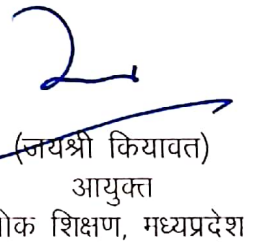 (जयश्री कियावत)
आयुक्त
शिक्षण, मध्यप्रदेश